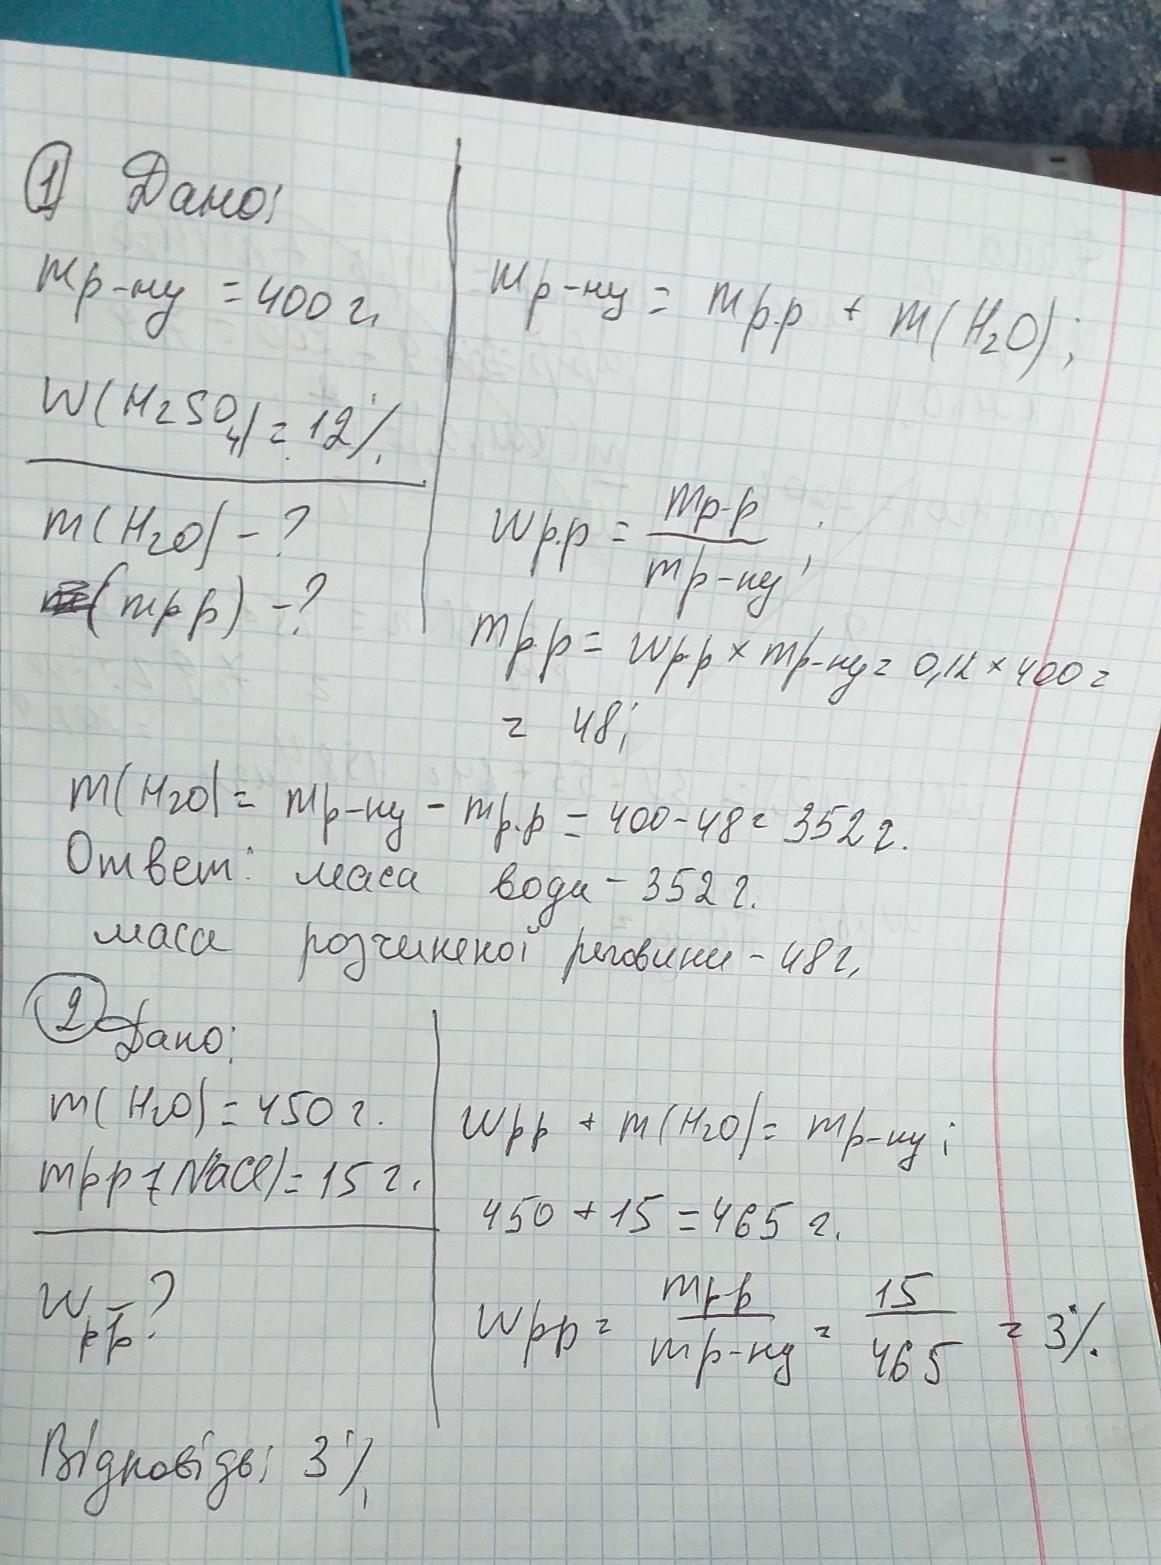 1 Дано:
mр-ну = 400 г.
W(H2SO4) = 12%.
m(H2O) - ?
(mрр) - ?
mр-ну = mр.р + m(H2O);
Wр.р = mр-р / mр-ну;
mр.р = Wр.р × mр-ну = 0,12 × 400 =
= 48;
m(H2O) = mр-ну - mр.р = 400 - 48 = 352 г.
Ответ: маса води - 352 г.
маса розчиненої реговини - 48 г.
2 Дано:
m(H2O) = 450 г.
mрр (NaCl) = 15 г.
Wрр - ?
Wрр + m(H2O) = mр-ну;
450 + 15 = 465 г.
Wрр = mр-р / mр-ну = 15 / 465 = 3%.
Відповідь: 3%